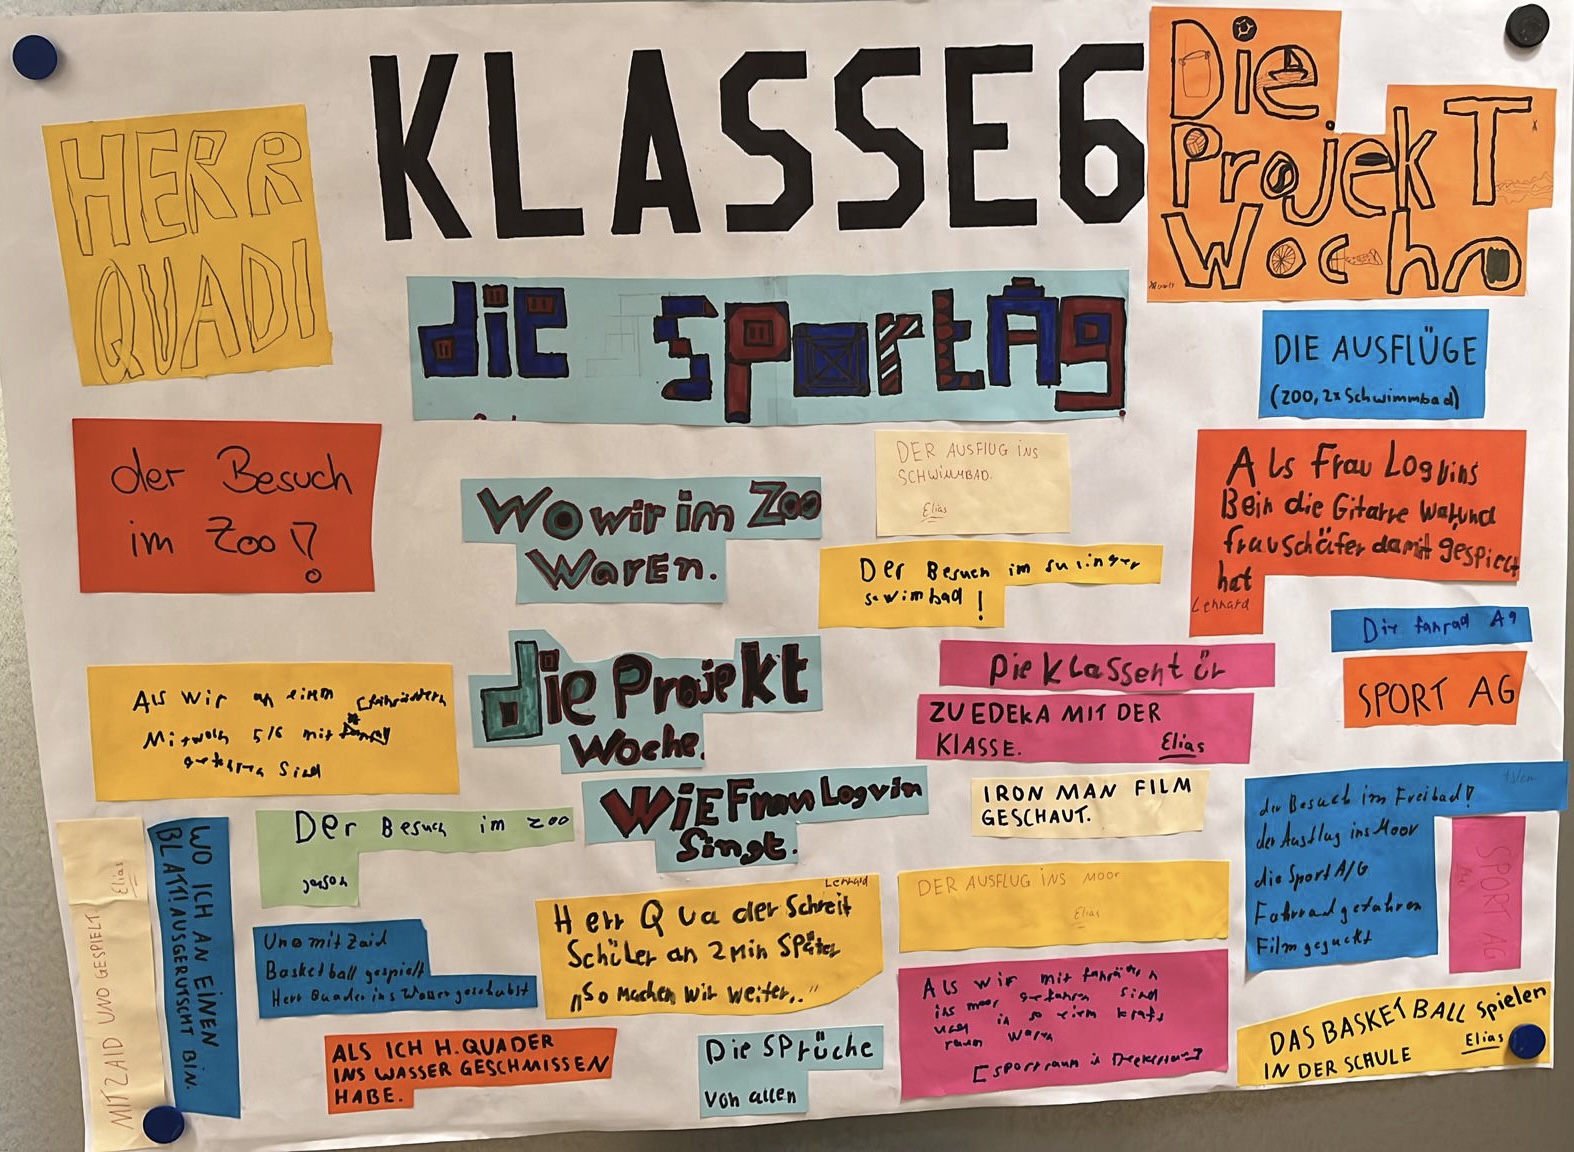 KLASSE6
HERR
QUADI
Die
ProjekT
Woche
die SportAg
DIE AUSFLÜGE
(ZOO, 2x Schwimmbad)
der Besuch
im Zoo!
Wo wir im Zoo
WarEn.
DER AUSFlUG iNS
SCHWIMMBAD.
Elias
Der Besuch im
swimbad!
Als Frau Logvins
Bein die Gitarre war und
frau schäfer damit gespielt
hat
Lennard
Die fahrad Ag
SPORT AG
Als wir an einem
Mitwoch 5/6 mit
gefahren sind
die Projekt
Woche.
Die Klassentür
ZU EDEKA MIT DER
KlASSE.
Elias
WiE Frau Logvin
Singt.
IRON MAN FILM
GESCHAUT.
der Besuch im Freibad!
der Ausflug ins Moor
die Sport A/G
Fahrrad gefahren
Film geguckt
SPORT AG
MIT ZAID UNO GESPIELT
Elias
WO ICH AN EINEN
BLATT AUSGERUTSCHT BIN.
Der Besuch im zoo
jason
Uno mit Zaid
Basketball gespielt
Herr Quader ins Wasser geschubst
Lennard
Herr Quader Schreit
Schüler an 2 Min Später
„So machen wir weiter.."
DER AUSFLUG INS MOOR
Elias
Als wir mit fahrädern
ins moor gefahren sind
und in so einem krafs
raum waren
ALS ICH H. QUADER
INS WASSER GESCHMISSEN
HABE.
Die SPrüche
von allen
DAS BASKETBALL spielen
IN DER SCHULE
Elias